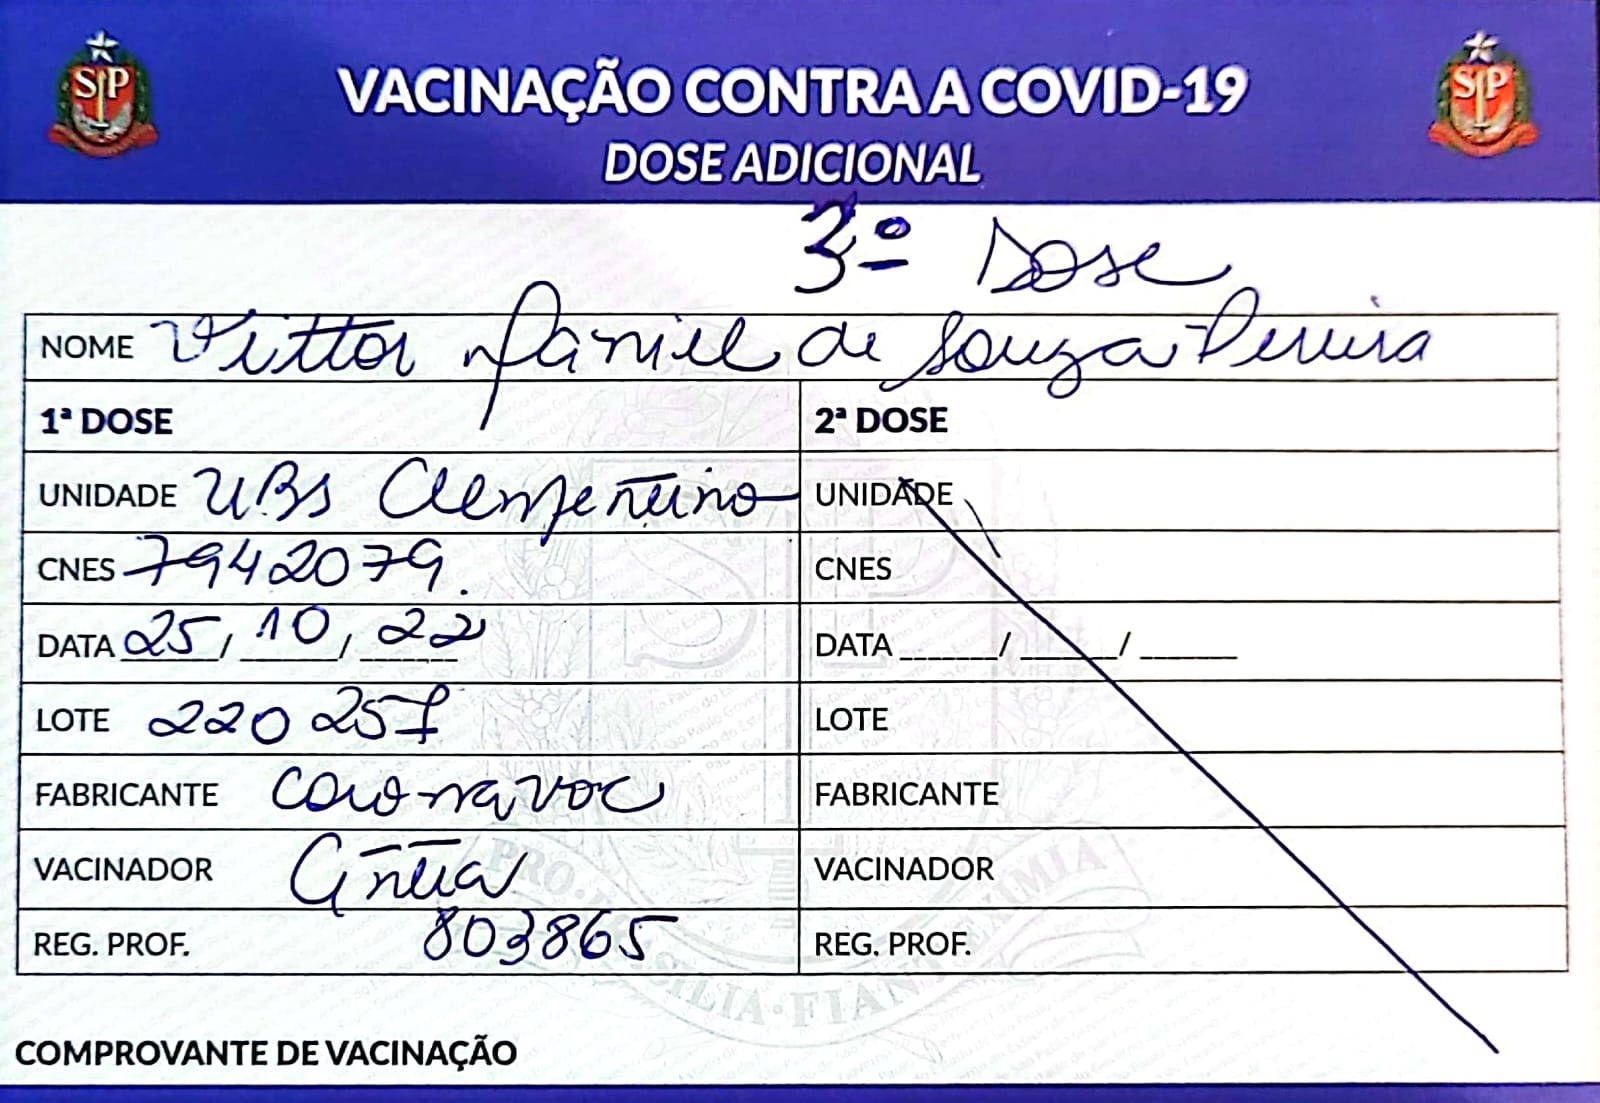 SP SP
VACINAÇÃO CONTRA A COVID-19
DOSE ADICIONAL
3º Dose
NOME Vittor Daniel de Souza Pereira
1ª DOSE 2ª DOSE
UNIDADE UBS Clementino UNIDADE
CNES 7942079. CNES
DATA 25/10/22 DATA ___/___/___
LOTE 220257 LOTE
FABRICANTE coronavac FABRICANTE
VACINADOR Cintia VACINADOR
REG. PROF. 803865 REG. PROF.
COMPROVANTE DE VACINAÇÃO